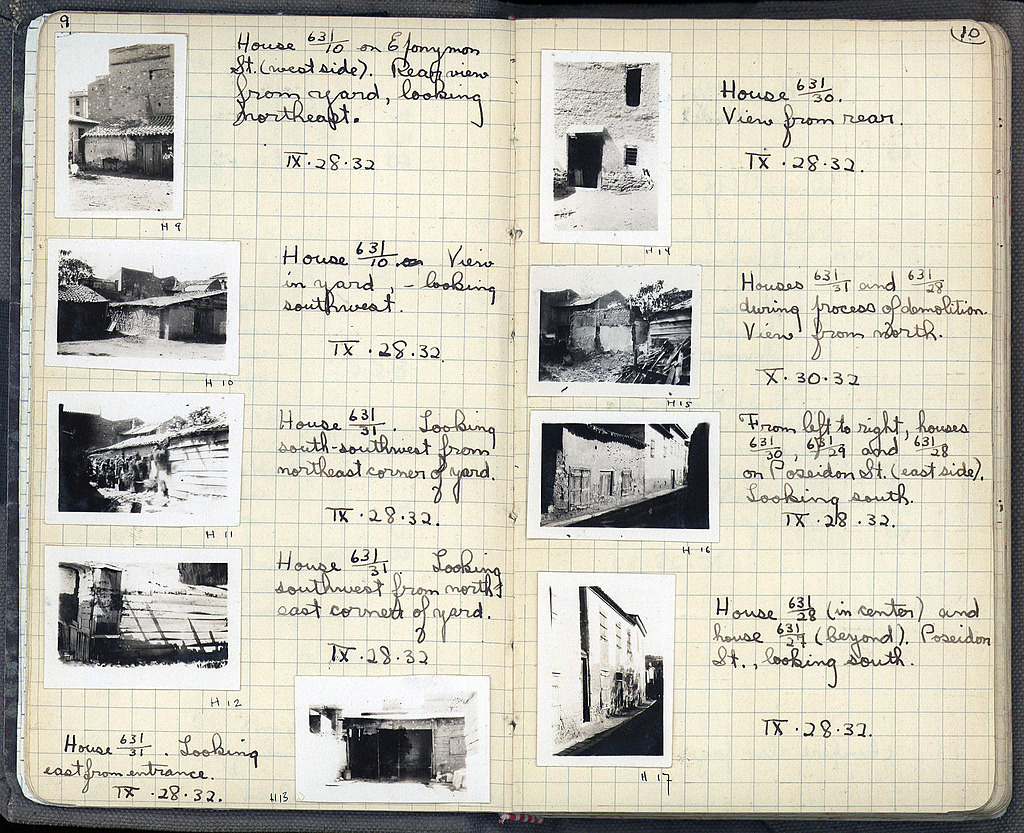 9
House 631/10 on Eponymon
St. (west side). Rear view
from yard, looking
northeast.
IX·28·32
H 9
House 631/10. View
in yard, - looking
southwest.
IX·28·32.
H 10
House 631/31. Looking
south-southwest from
northeast corner of yard.
IX·28·32.
H 11
House 631/31. Looking
southwest from north-
east corner of yard.
IX·28·32
H 12
House 631/31. Looking
east from entrance.
IX·28·32.
H13
10
House 631/30.
View from rear.
IX·28·32.
H 14
Houses 631/31 and 631/28
during process of demolition.
View from north.
X·30·32
H15
From left to right, houses
631/30, 631/29 and 631/28
on Poseidon St. (east side).
Looking south.
IX·28·32.
H 16
House 631/28 (in center) and
house 631/27 (beyond). Poseidon
St., looking south.
IX·28·32.
H 17